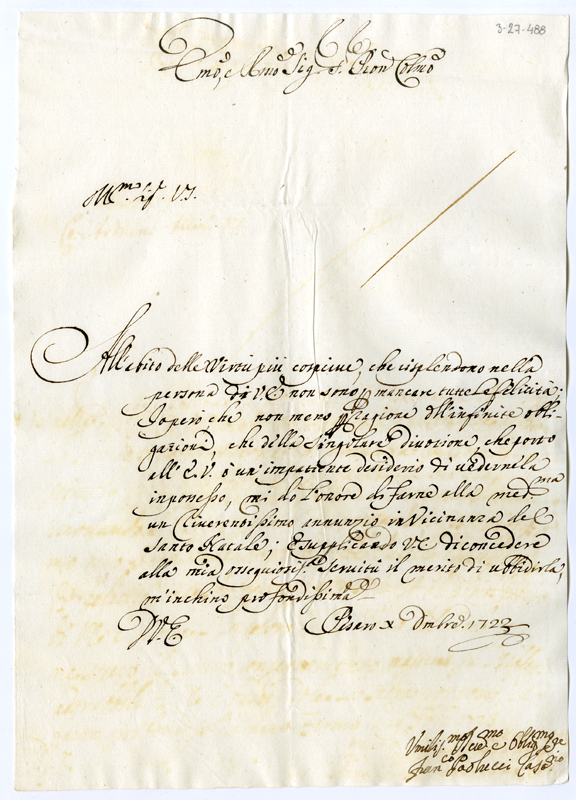 3-27-488
Emo, e Rmo Sig.r et Pron Colmo
All'abito delle Virtù più cospicue, che risplendono nella
persona di V.E. non sono p mancare tutte le felicità;
Io però che non meno p ragione dell'infinite obli-
gazioni, che della singolare divozione, che porto
all'E.V. ò un impatiente desiderio di vederne la
in possesso, mi do l'onore di farne alla med.ma
un riverendissimo annunzio in vicinanza del
Santo Natale; E supplicando V.E. di concedere
alla mia ossequiosis.a servitù il merito di ubbidirla,
m'inchino profondissimam.e
D.V.E.
Pesaro X Dmbre. 1722
Umilis.mo Dev.mo e Oblig.mo Se.re
Fran.co Paolucci